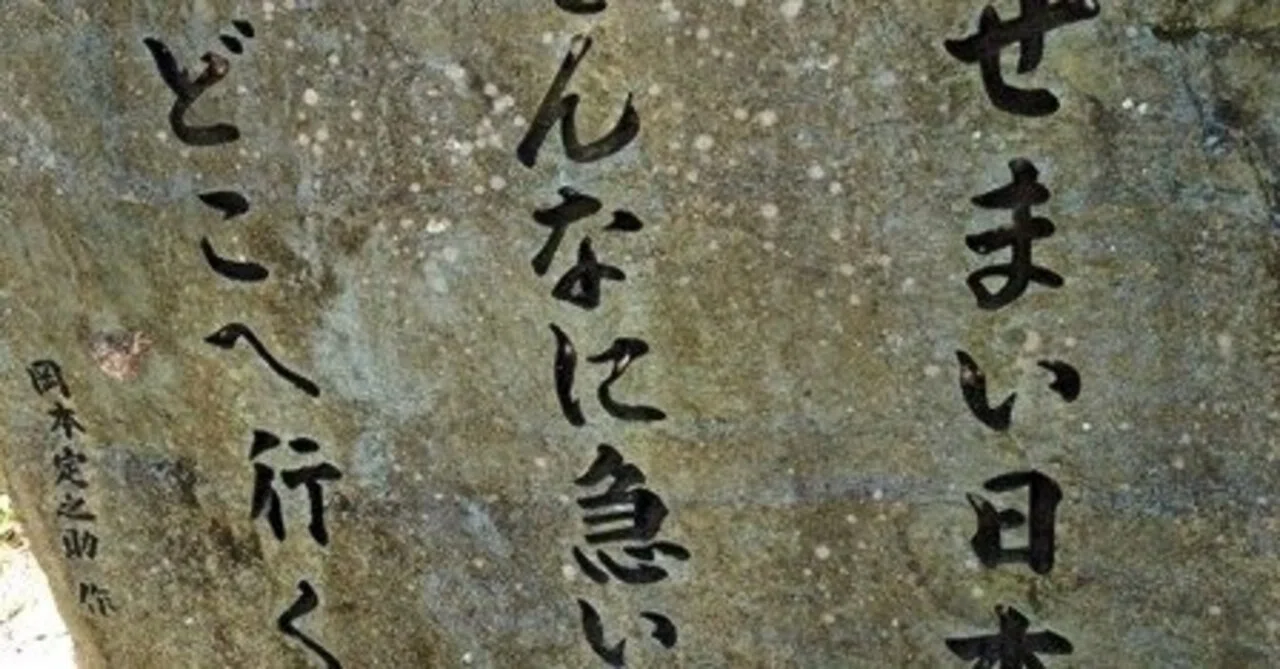 せまい日本
そんなに急い
どこへ行く
岡本定之助 作